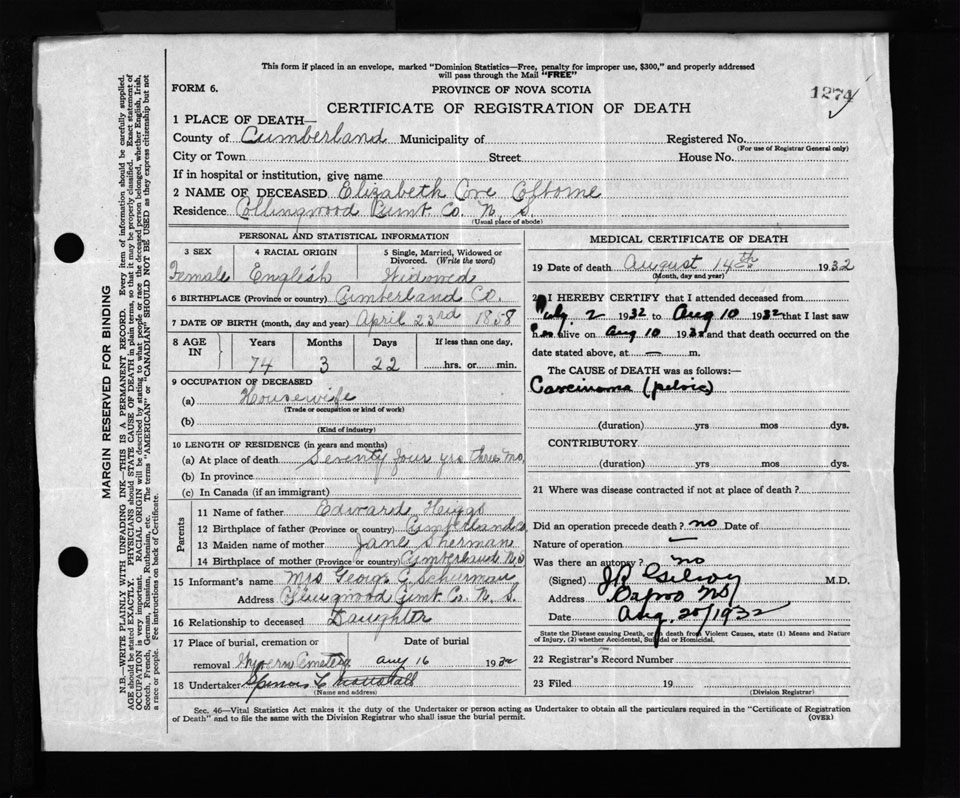 This form if placed in an envelope, marked "Dominion Statistics—Free, penalty for improper use, $300," and properly addressed
will pass through the Mail "FREE"
FORM 6.
PROVINCE OF NOVA SCOTIA
1274
CERTIFICATE OF REGISTRATION OF DEATH
1 PLACE OF DEATH—
County of Cumberland Municipality of Registered No.
(For use of Registrar General only)
City or Town Street House No.
If in hospital or institution, give name
2 NAME OF DECEASED Elizabeth
Residence Collingwood Cumt. Co. N. S.
(Usual place of abode)
PERSONAL AND STATISTICAL INFORMATION
3 SEX 4 RACIAL ORIGIN 5 Single, Married, Widowed or
Divorced. (Write the word)
Female English Widowed
6 BIRTHPLACE (Province or country) Cumberland Co.
7 DATE OF BIRTH (month, day and year) April 23rd 1858
8 AGE IN Years Months Days If less than one day,
74 3 22 hrs. or min.
9 OCCUPATION OF DECEASED
(a) Housewife
(Trade or occupation or kind of work)
(b)
(Kind of industry)
10 LENGTH OF RESIDENCE (in years and months)
(a) At place of death Seventy four yrs three mo.
(b) In province
(c) In Canada (if an immigrant)
Parents
11 Name of father Edward
12 Birthplace of father (Province or country) Cumberland
13 Maiden name of mother Jane Sherman
14 Birthplace of mother (Province or country) Cumberland N.S
15 Informant's name Mrs George Schurman
Address Collingwood Cumt. Co. N. S.
16 Relationship to deceased Daughter
17 Place of burial, cremation or Date of burial
removal Cemetery Aug 16 1932
18 Undertaker
(Name and address)
MEDICAL CERTIFICATE OF DEATH
19 Date of death August 14th 1932
(Month, day and year)
20 I HEREBY CERTIFY that I attended deceased from
July 2 1932 to Aug 10 1932 that I last saw
her alive on Aug 10 1932 and that death occurred on the
date stated above, at — m.
The CAUSE OF DEATH was as follows:—
Carcinoma (pelvic)
(duration) yrs mos dys.
CONTRIBUTORY
(duration) yrs mos dys.
21 Where was disease contracted if not at place of death?
Did an operation precede death? no Date of
Nature of operation —
Was there an autopsy? no
(Signed) M.D.
Address NS
Date Aug. 20/1932
State the Disease causing Death, or in death from Violent Causes, state (1) Means and Nature
of Injury, (2) whether Accidental, Suicidal or Homicidal.
22 Registrar's Record Number
23 Filed 19
(Division Registrar)
Sec. 46—Vital Statistics Act makes it the duty of the Undertaker or person acting as Undertaker to obtain all the particulars required in the "Certificate of Registration
of Death" and to file the same with the Division Registrar who shall issue the burial permit.
(OVER)
MARGIN RESERVED FOR BINDING
N.B.—WRITE PLAINLY WITH UNFADING INK—THIS IS A PERMANENT RECORD. Every item of information should be carefully supplied.
AGE should be stated EXACTLY. PHYSICIANS should STATE CAUSE OF DEATH in plain terms, so that it may be properly classified. Exact statement of
OCCUPATION is very important. RACIAL ORIGIN will be described by stating to what people or race the deceased person belonged, whether English, Irish,
Scotch, French, German, Russian, Ruthenian, etc. The terms "AMERICAN" or "CANADIAN" SHOULD NOT BE USED as they express citizenship but not
a race or people. See instructions on back of Certificate.